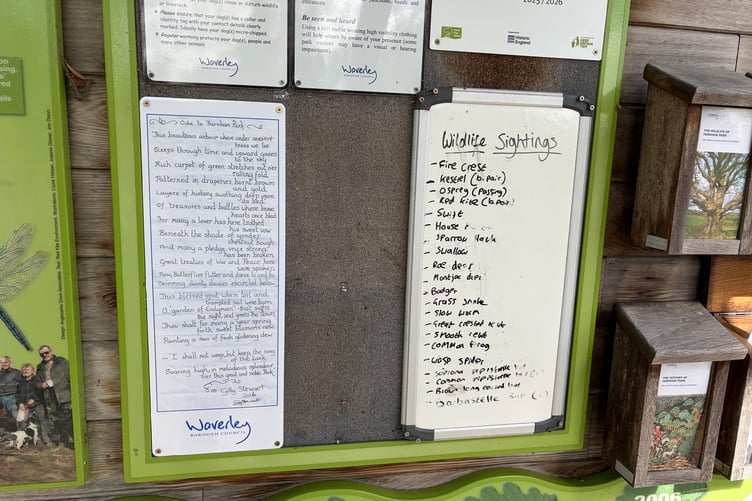 your dog(s) chase or disturb wildlife
or livestock.
Please ensure that your dog(s) has a collar and
identity tag with your contact details clearly
marked. Ideally have your dog(s) micro-chipped.
Regular worming protects your dog(s), people and
many other animals
Waverley
BOROUGH COUNCIL
Be seen and heard
Using a bell and/or wearing high visibility clothing
will help others be aware of your presence (some
park visitors may have a visual or hearing
impairment).
Waverley
BOROUGH COUNCIL
2025/2026
Historic
England
Ode to Farnham Park
This beauteous arbour where under ancient
trees we lie
Sleeps through time and upward gazes
to the sky
Rich carpet of green stretches out o'er
rolling fold
Patterned in draperies, burnt brown
and gold.
Layers of history swathing deep upon
its bed
Of treasures and battles where brave
hearts once bled
For many a lover has here trothed
his sweet vow
Beneath the shade of yonder
chestnut bough
And many a pledge, once strong
has been broken
Great treaties of War and Peace here
were spoken
Now, Butterflies flutter and dance to and fro
Skimming dainty daisies encircled below
This blessed spot where toil and
trampled soil were borne
A 'garden of Endymion' that sights
the night and greets the dawn
Thou shalt for many a year spring
forth sweet blossoms new
Planting a sea of fresh glistening dew
~ 'I shall not weep, but keep the song
of the Lark
Soaring high, melodious splendour,
o'er this great and noble Park
Gilly Stewart
Waverley
BOROUGH COUNCIL
Wildlife Sightings
- Fire crest
- Kestrel (a pair)
- Osprey (Passing)
- Red Kite
- Swift
- House
- Sparrow Hawk
- Swallow
- Roe deer
- Montjac deer
- Badger
- Grass snake
- Slow worm
- Great crested newt
- Smooth newt
- COMMON frog
- wasp spider
- Soprano Pipistrelle bat
- Common Pipistrelle bat
- Brown long eared bat
- Barbastelle
THE WILDLIFE OF
FARNHAM PARK
THE HISTORY OF
FARNHAM PARK
2006